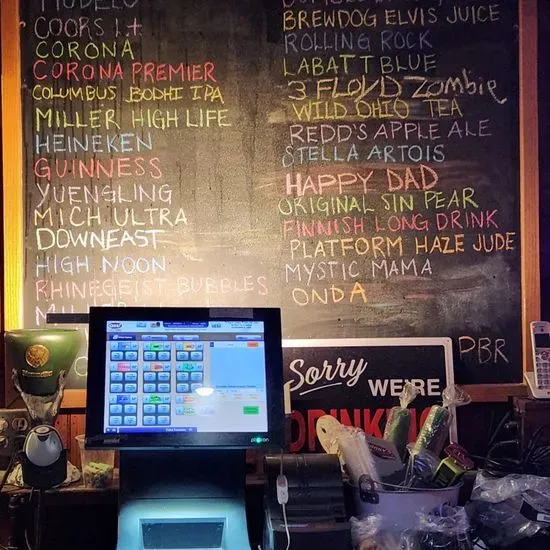 MODELO
COORS LT
CORONA
CORONA PREMIER
COLUMBUS BODHI IPA
MILLER HIGH LIFE
HEINEKEN
GUINNESS
YUENGLING
MICH ULTRA
DOWNEAST
HIGH NOON
RHINEGEIST BUBBLES
BREWDOG ELVIS JUICE
ROLLING ROCK
LABATT BLUE
3 FLOYD Zombie
WILD OHIO TEA
REDD'S APPLE ALE
STELLA ARTOIS
HAPPY DAD
ORIGINAL SIN PEAR
FINNISH LONG DRINK
PLATFORM HAZE JUDE
MYSTIC MAMA
ONDA
PBR
Sorry
WE'RE